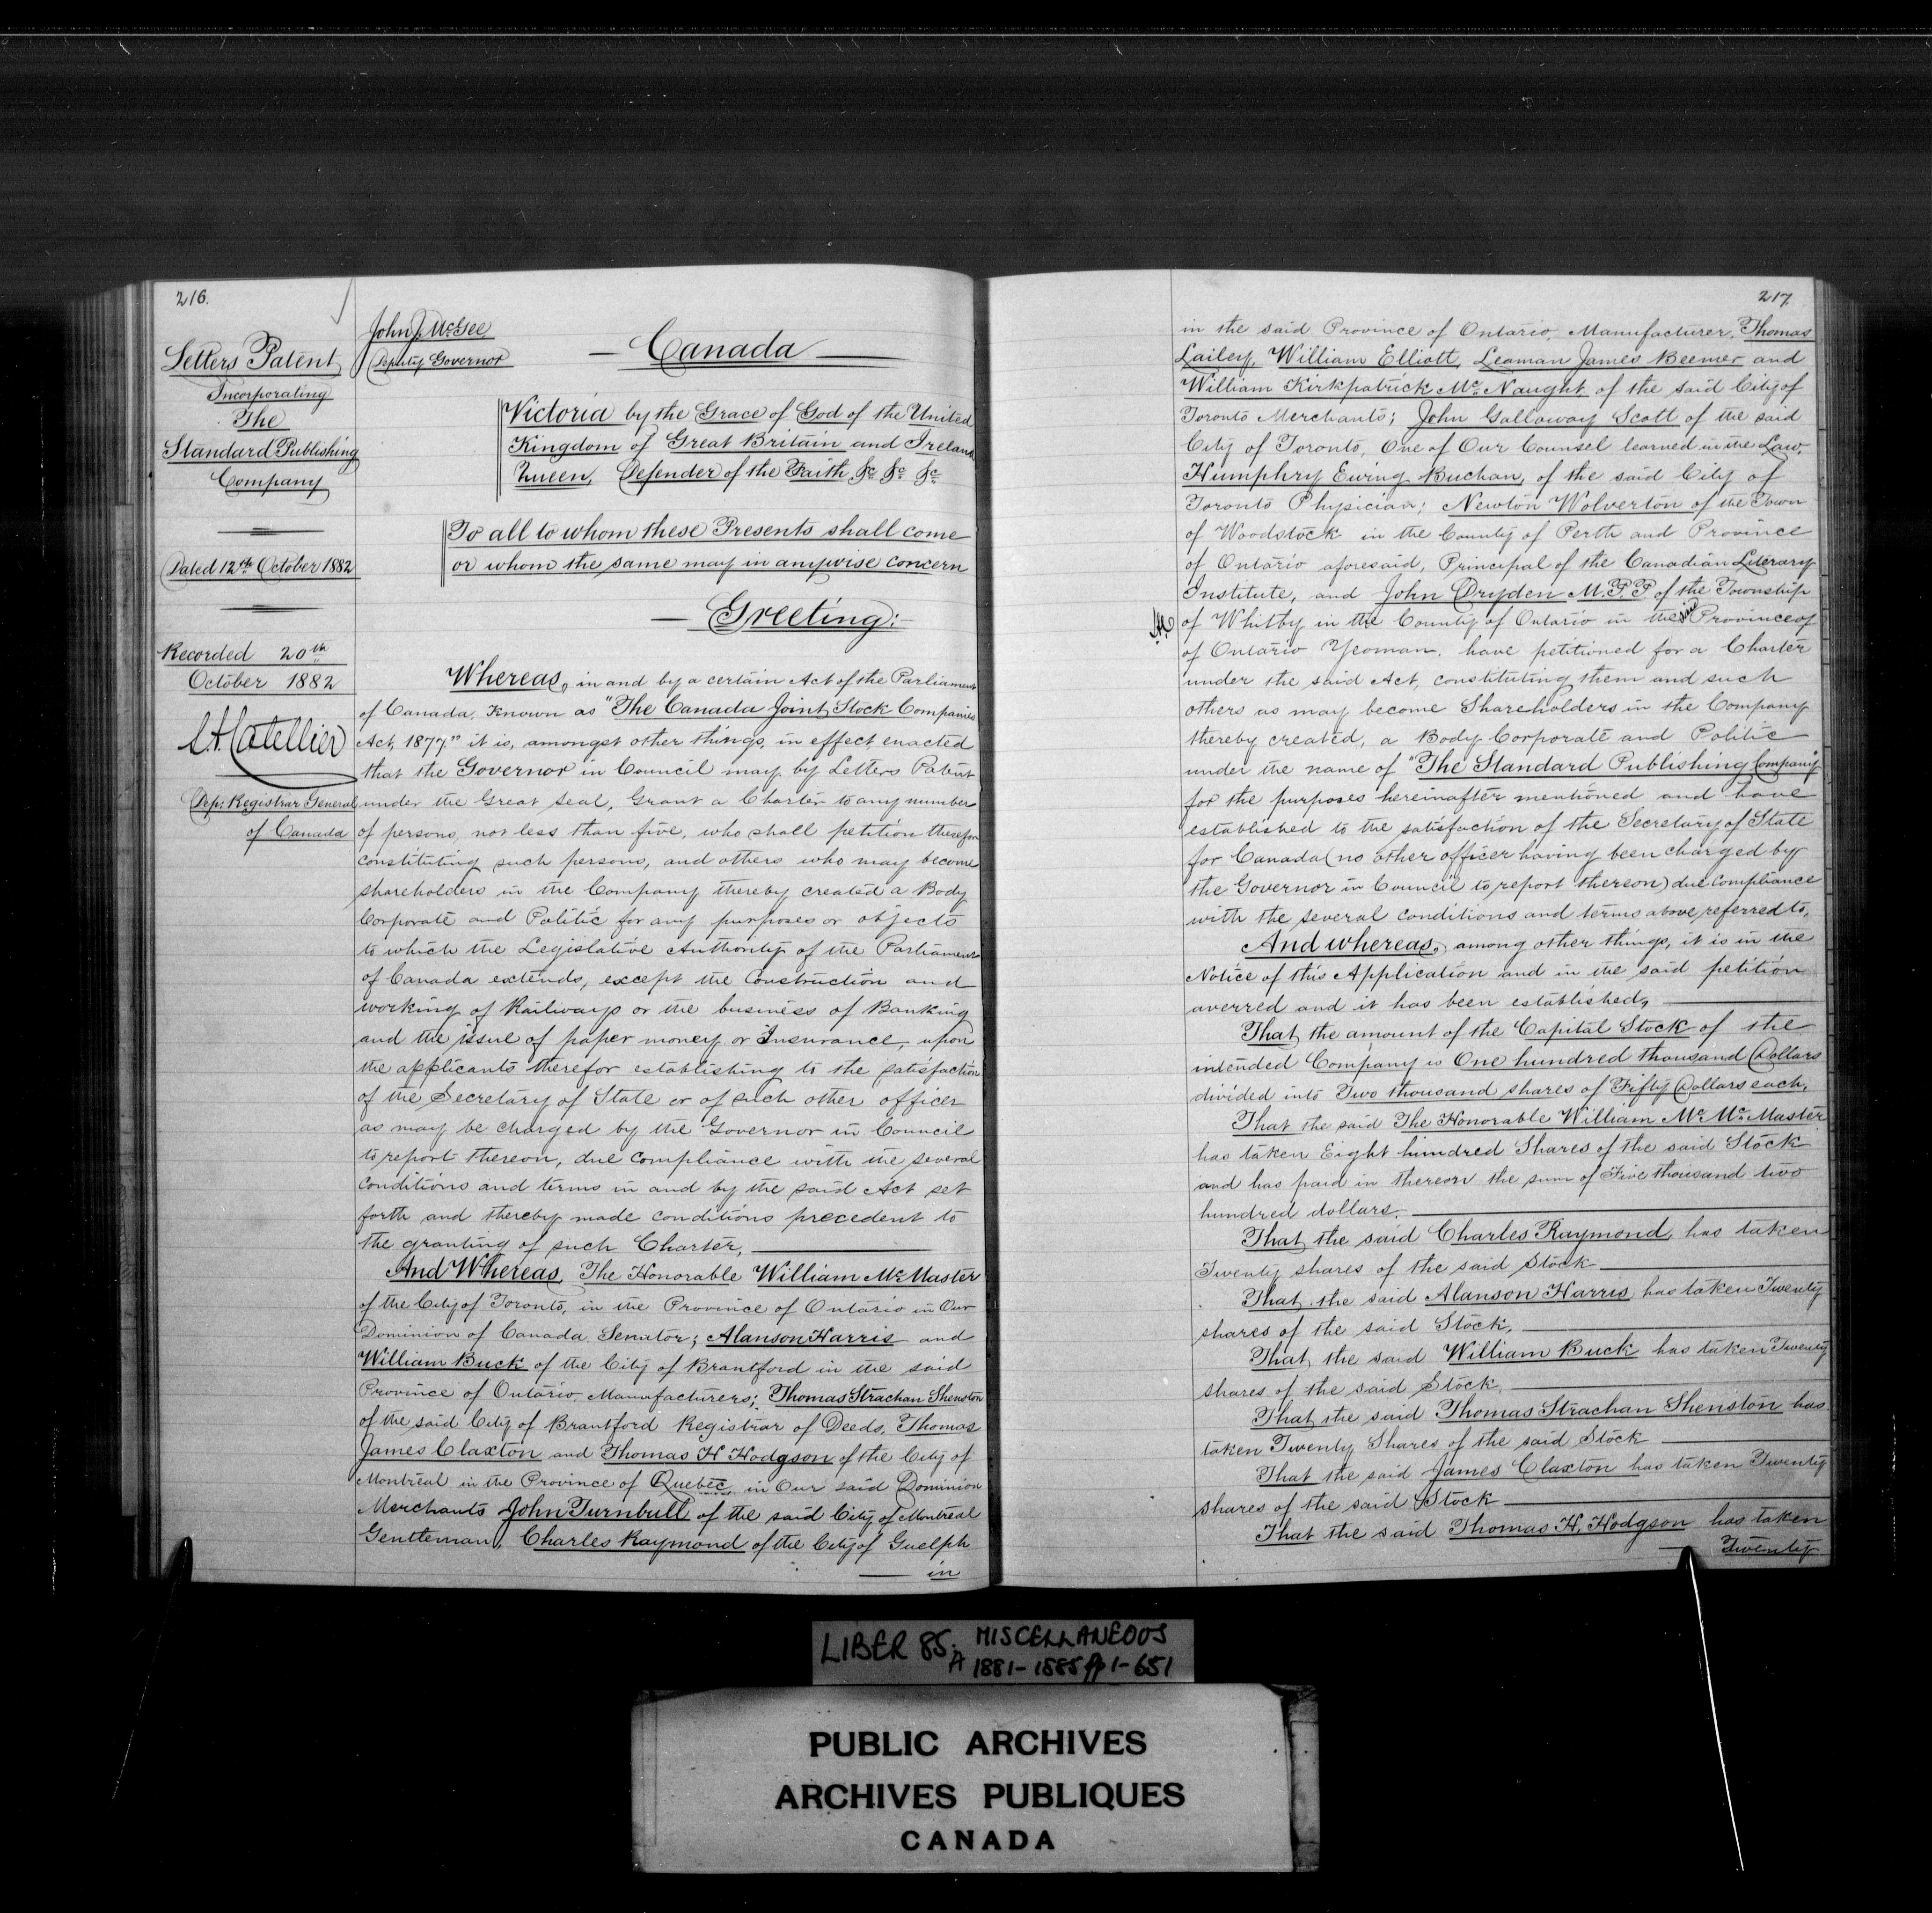 216.
Letters Patent
Incorporating
The
Standard Publishing
Company
Dated 12th October 1882
Recorded 20th
October 1882
L. A. Catellier
Dep: Registrar General
of Canada
John J. McGee
Deputy Governor
Canada
Victoria by the Grace of God of the United
Kingdom of Great Britain and Ireland
Queen, Defender of the Faith &c &c &c
To all to whom these Presents shall come
or whom the same may in anywise concern
Greeting:
Whereas, in and by a certain Act of the Parliament
of Canada, Known as "The Canada Joint Stock Companies
Act, 1877," it is, amongst other things, in effect enacted
that the Governor in Council may by Letters Patent
under the Great Seal, Grant a Charter to any number
of persons, not less than five, who shall petition therefor
constituting such persons, and others who may become
shareholders in the Company thereby created a Body
Corporate and Politic for any purposes or objects
to which the Legislative Authority of the Parliament
of Canada extends, except the Construction and
working of Railways or the business of Banking
and the issue of paper money or Insurance, upon
the applicants therefor establishing to the satisfaction
of the Secretary of State or of such other officer
as may be charged by the Governor in Council
to report thereon, due compliance with the several
conditions and terms in and by the said Act set
forth and thereby made conditions precedent to
the granting of such Charter,
And Whereas, The Honorable William McMaster
of the City of Toronto, in the Province of Ontario in Our
Dominion of Canada Senator; Alanson Harris and
William Buck of the City of Brantford in the said
Province of Ontario Manufacturers; Thomas Strachan Shenston
of the said City of Brantford Registrar of Deeds, Thomas
James Claxton and Thomas H Hodgson of the City of
Montreal in the Province of Quebec, in Our said Dominion
Merchants John Turnbull of the said City of Montreal
Gentleman, Charles Raymond of the City of Guelph
in
217
in the said Province of Ontario, Manufacturer, Thomas
Lailey, William Elliott, Leaman James Beemer and
William Kirkpatrick McNaught of the said City of
Toronto Merchants; John Galloway Scott of the said
City of Toronto, One of Our Counsel learned in the Law,
Humphry Ewing Buchan, of the said City of
Toronto Physician; Newton Wolverton of the Town
of Woodstock in the County of Perth and Province
of Ontario aforesaid, Principal of the Canadian Literary
Institute, and John Dryden M.P.P. of the Township
of Whitby in the County of Ontario in the Province of
of Ontario Yeoman, have petitioned for a Charter
under the said Act, constituting them and such
others as may become Shareholders in the Company
thereby created, a Body Corporate and Politic
under the name of "The Standard Publishing Company"
for the purposes hereinafter mentioned and have
established to the satisfaction of the Secretary of State
for Canada (no other officer having been charged by
the Governor in Council to report thereon) due compliance
with the several conditions and terms above referred to,
And whereas, among other things, it is in the
Notice of this Application and in the said petition
averred and it has been established,
That the amount of the Capital Stock of the
intended Company is One hundred thousand Dollars
divided into Two thousand shares of Fifty Dollars each,
That the said The Honorable William Mc McMaster
has taken Eight hundred Shares of the said Stock
and has paid in thereon the sum of Five thousand two
hundred dollars.
That the said Charles Raymond, has taken
Twenty shares of the said Stock
That the said Alanson Harris has taken Twenty
shares of the said Stock,
That the said William Buck has taken Twenty
shares of the said Stock,
That the said Thomas Strachan Shenston has
taken Twenty Shares of the said Stock
That the said James Claxton has taken Twenty
shares of the said Stock
That the said Thomas H. Hodgson has taken
Twenty
LIBER 85. MISCELLANEOUS
A 1881-1885 pp 1-651
PUBLIC ARCHIVES
ARCHIVES PUBLIQUES
CANADA